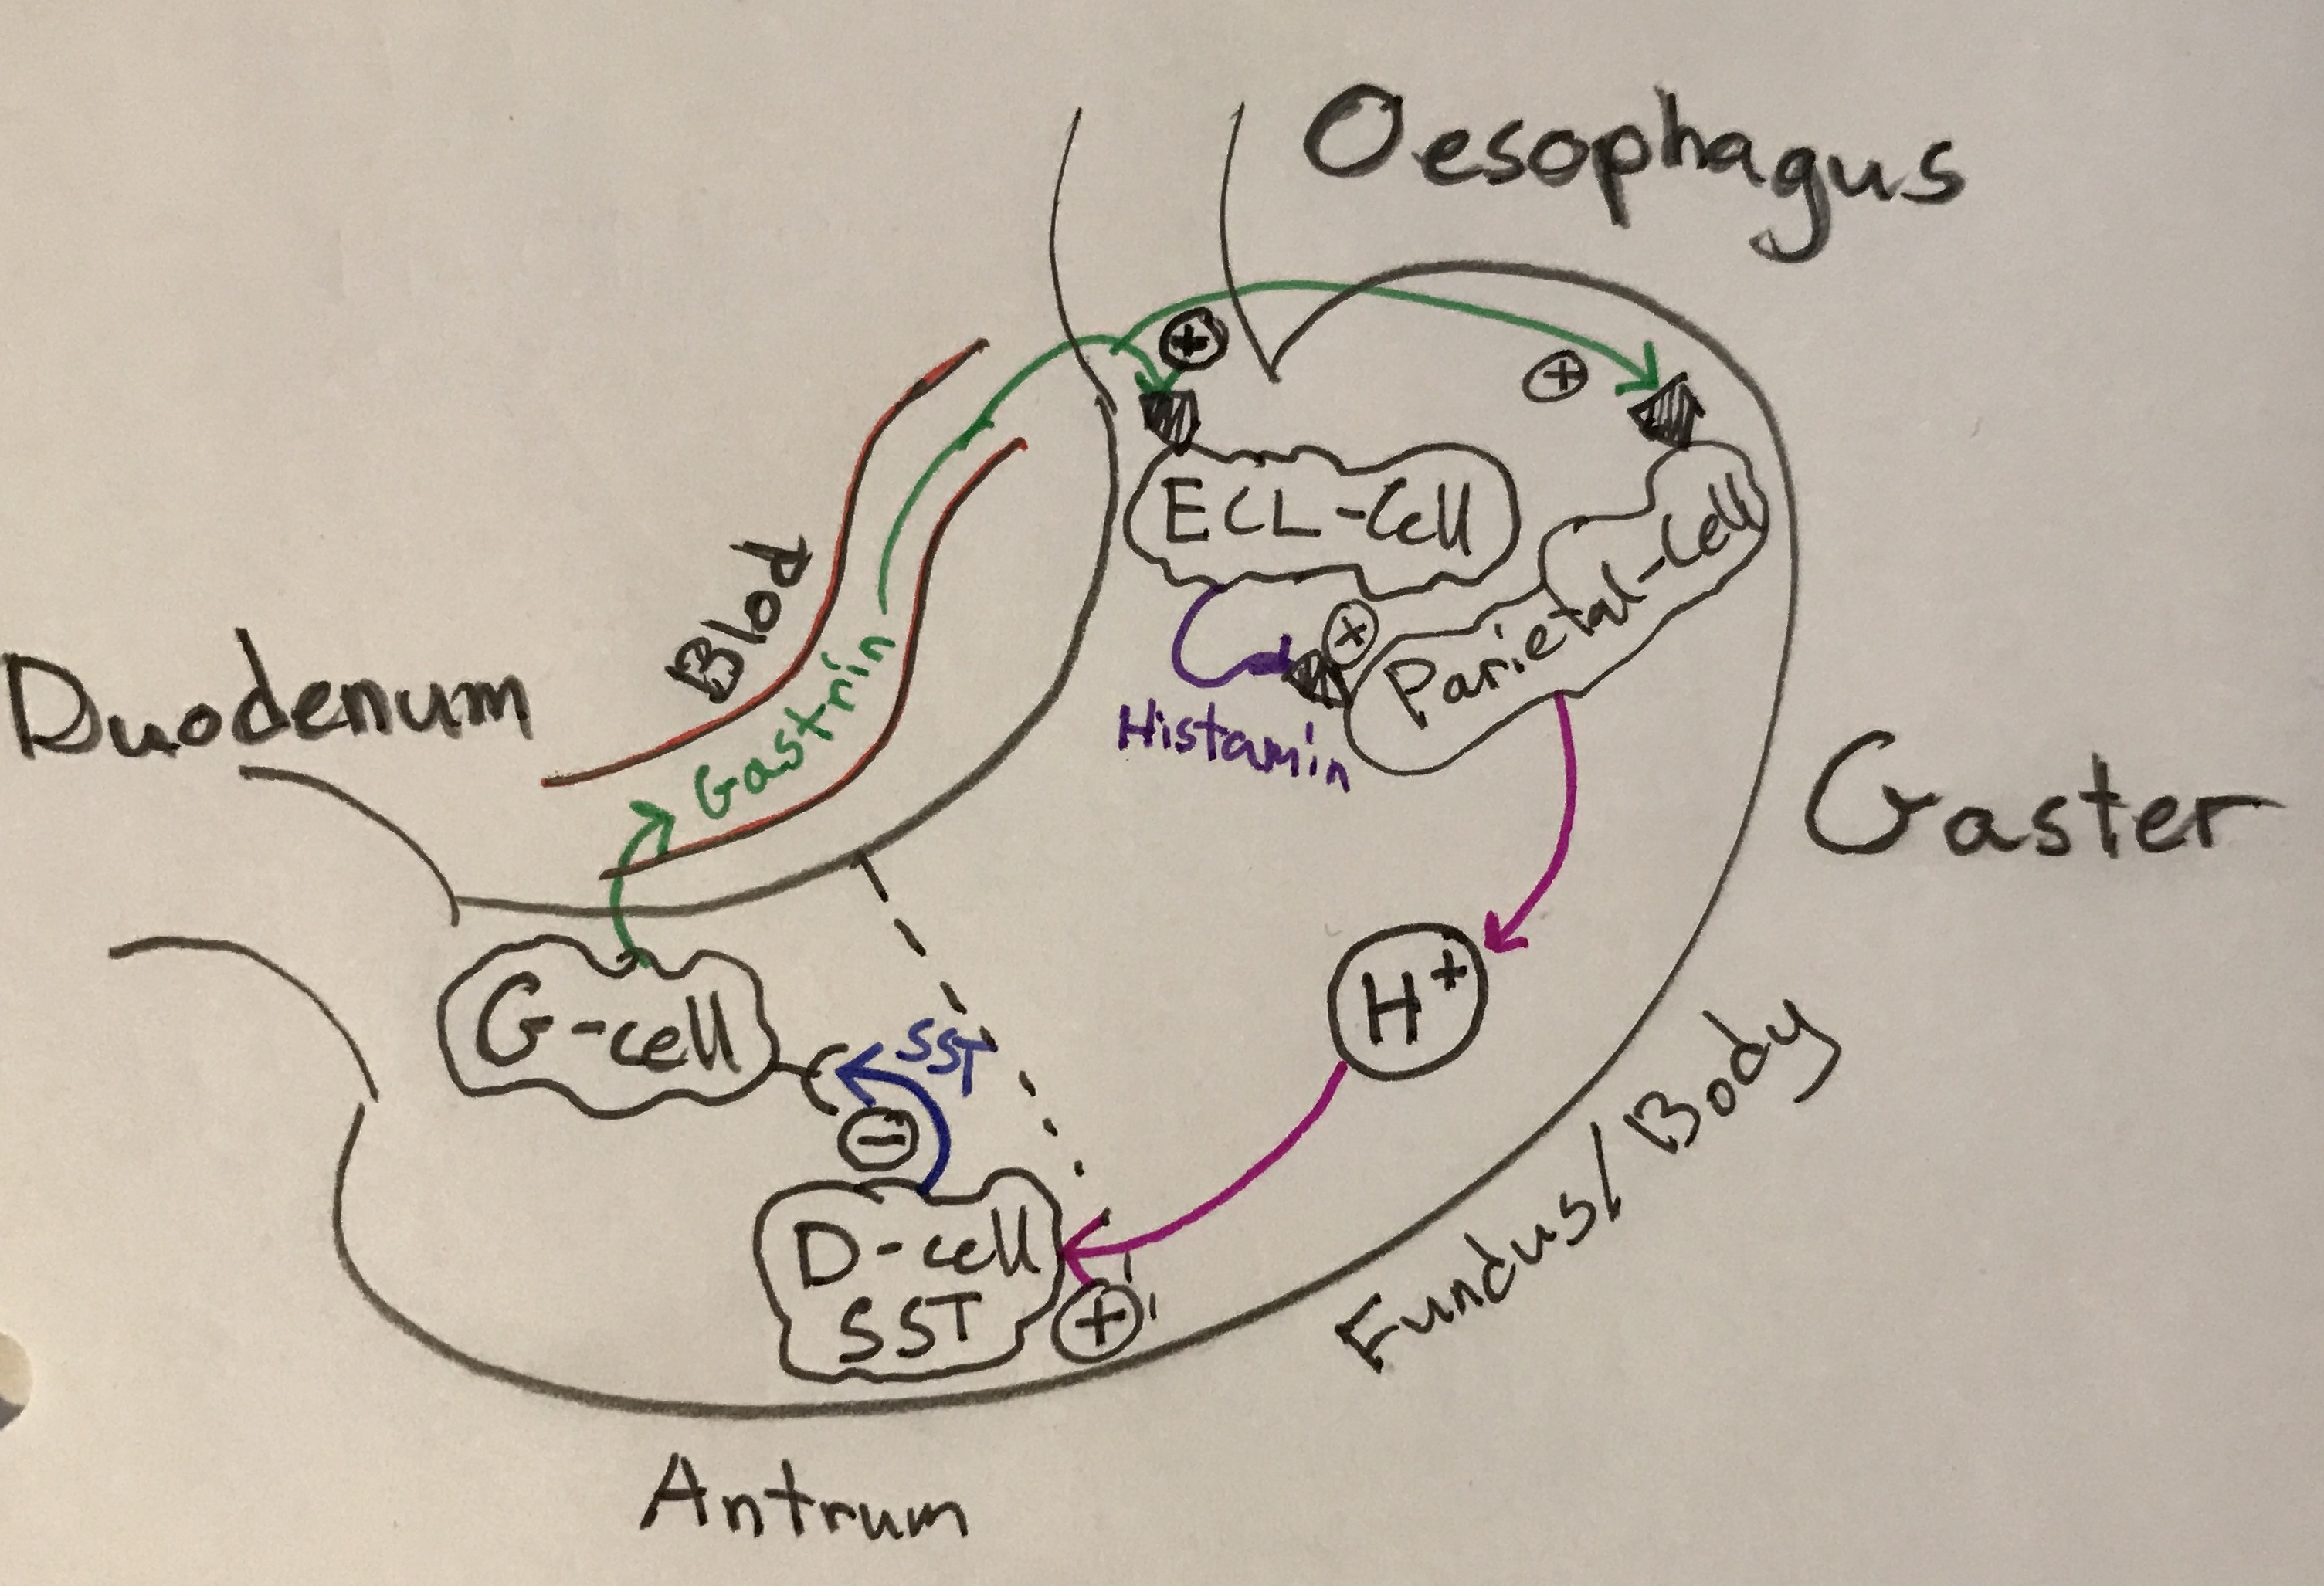 Oesophagus
+
+
ECL-Cell
Parietal-Cell
+
Histamin
Blod
Gastrin
Duodenum
Gaster
G-cell
SST
−
H+
D-cell
SST
+
Fundus/Body
Antrum